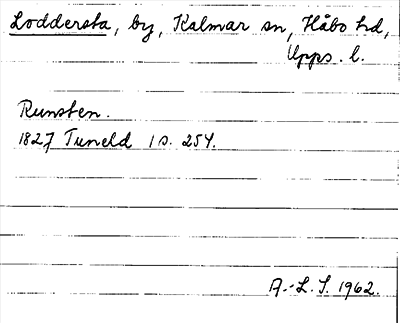 Loddersta, by, Kalmar sn, Håbo hd,
Upps. l.
Runsten.
1827 Tuneld I s. 254.
A.-L. S. 1962.